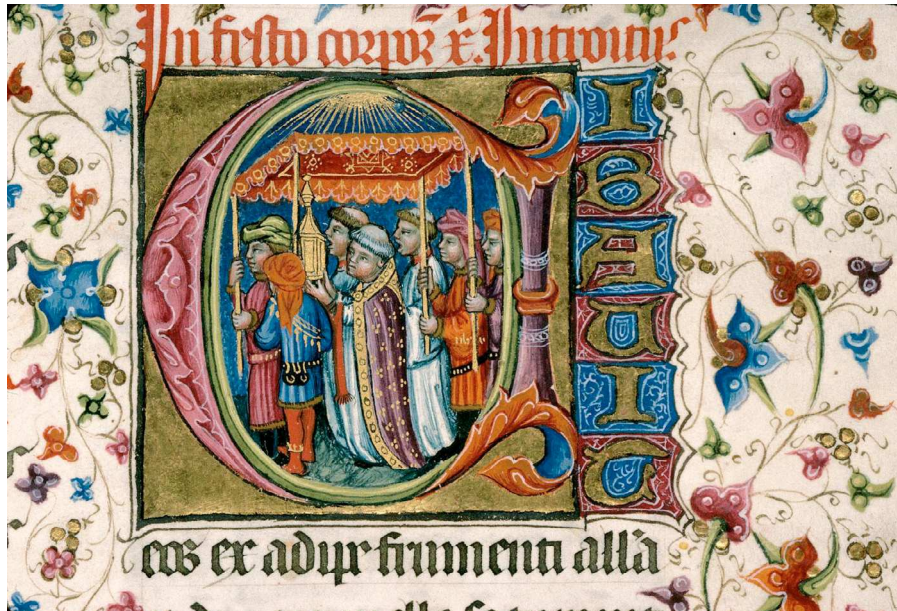 In festo corpor̄ x̄i. Introitus
CIBAUIT
eos ex adipe frumenti all̄a